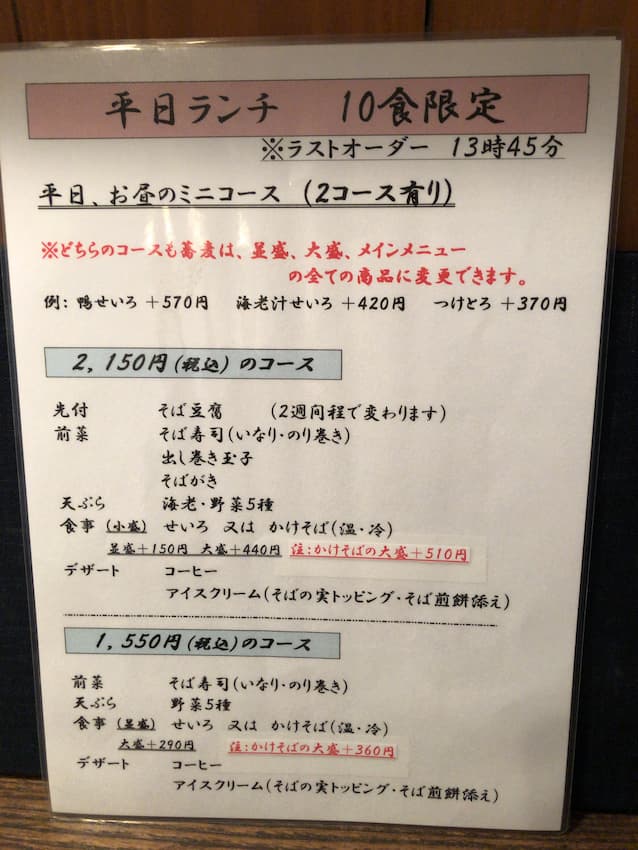 平日ランチ 10食限定
※ラストオーダー 13時45分
平日、お昼のミニコース (2コース有り)
※どちらのコースも蕎麦は、並盛、大盛、メインメニュー
の全ての商品に変更できます。
例: 鴨せいろ +570円 海老汁せいろ +420円 つけとろ +370円
2,150円(税込)のコース
先付 そば豆腐 (2週間程で変わります)
前菜 そば寿司(いなり・のり巻き)
出し巻き玉子
そばがき
天ぷら 海老・野菜5種
食事 (小盛) せいろ 又は かけそば(温・冷)
並盛+150円 大盛+440円 注:かけそばの大盛+510円
デザート コーヒー
アイスクリーム(そばの実トッピング・そば煎餅添え)
1,550円(税込)のコース
前菜 そば寿司(いなり・のり巻き)
天ぷら 野菜5種
食事 (並盛) せいろ 又は かけそば(温・冷)
大盛+290円 注:かけそばの大盛+360円
デザート コーヒー
アイスクリーム(そばの実トッピング・そば煎餅添え)